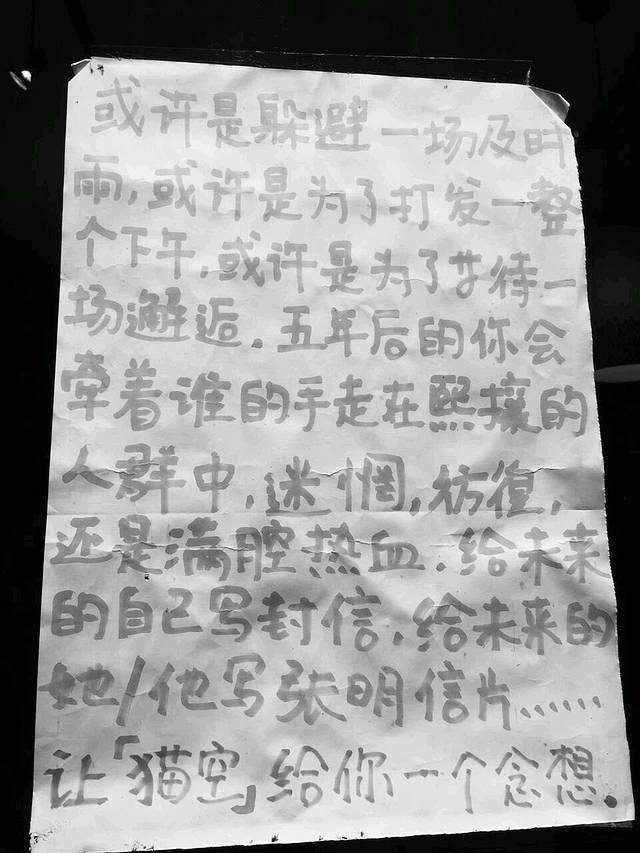 或许是躲避一场及时
雨,或许是为了打发一整
个下午,或许是为了等待一
场邂逅.五年后的你会
牵着谁的手走在熙攘的
人群中,迷惘,彷徨,
还是满腔热血.给未来
的自己写封信,给未来的
她/他写张明信片......
让「猫空」给你一个念想.